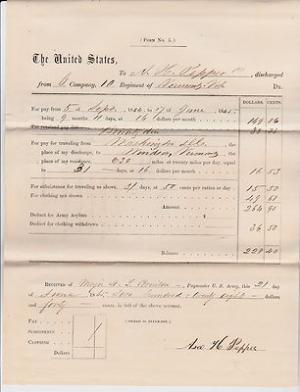 (FORM No. 5.)
The United States,
To A. H. Pepper discharged
from Company, 10 Regiment of Vermont Vols Dr.
DOLLARS. CENTS.
For pay from 5 Sept. to 17 June
being 9 months 11 days, at 16 dollars per month 149 16
For retained pay due
For pay for traveling from Washington D.C.
the place of my discharge, to Windsor, Vermont
the place of my residence, 620 miles at twenty miles per day, equal
to 31 days, at 16 dollars per month 16 53
For subsistence for traveling as above 31 days, at 50 cents per ration or day 15 50
For clothing not drawn 49 60
Amount 264 90
Deduct for Army Asylum
Deduct for clothing withdrawn 36 50
Balance 228 40
RECEIVED of Major Paymaster U. S. Army, this 21 day
of June two hundred twenty eight dollars
and forty cents, in full of the above account.
PAY
SUBSISTENCE
CLOTHING
Dollars
(SIGNED IN DUPLICATE.)
Asa H. Pepper